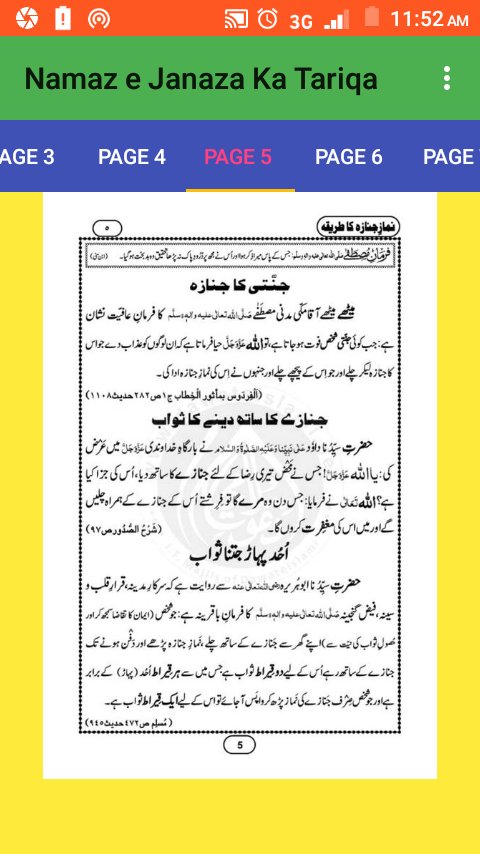 3G 11:52 AM
Namaz e Janaza Ka Tariqa
AGE 3 PAGE 4 PAGE 5 PAGE 6 PAGE
نمازِ جنازہ کا طریقہ ۵
فرمانِ مصطفٰے صلی اللہ تعالٰی علیہ والہٖ وسلم: جس کے پاس میرا ذکر ہوا اور اُس نے مجھ پر دُرُودِ پاک نہ پڑھا تحقیق وہ بد بخت ہو گیا۔
جنّتی کا جنازہ
میٹھے میٹھے آقا مکّی مدنی مصطَفٰے صَلَّی اللہ تعالٰی علیہ والہٖ وسلَّم کا فرمانِ عافیّت نشان
ہے: جب کوئی جنّتی شخص فوت ہو جاتا ہے، تو اللہ عَزَّوَجَلَّ حیا فرماتا ہے کہ ان لوگوں کو عذاب دے جو اس
کا جنازہ لیکر چلے اور جو اِس کے پیچھے چلے اور جنہوں نے اِس کی نمازِ جنازہ ادا کی۔
(اَلْفِردَوس بمأثور الْخِطاب ج۱ ص۲۸۲ حدیث ۱۱۰۸)
جنازے کا ساتھ دینے کا ثواب
حضرتِ سیِّدُنا داوٗد عَلٰی نَبِیِّنا وَعَلَیْہِ الصَّلٰوۃُ وَالسَّلام نے بارگاہِ خداوندی عَزَّوَجَلَّ میں عَرْض
کی: یا اللہ عَزَّوَجَلَّ! جس نے مَحْض تیری رِضا کے لئے جنازے کا ساتھ دیا، اُس کی جزا کیا
ہے؟ اللہ تَعَالٰی نے فرمایا: جس دن وہ مرے گا تو فِرِشتے اُس کے جنازے کے ہمراہ چلیں
گے اور میں اس کی مغفِرت کروں گا۔ (شَرْحُ الصُّدُور ص۹۷)
اُحُد پہاڑ جتنا ثواب
حضرتِ سیِّدُنا ابو ہُریرہ رضی اللہ تعالٰی عنہ سے روایت ہے کہ سرکارِ مدینہ، قرارِ قلب و
سینہ، فیض گنجینہ صَلَّی اللہ تعالٰی علیہ والہٖ وسلَّم کا فرمانِ باقرینہ ہے: جو شخص (ایمان کا تقاضا سمجھ کر اور
حُصولِ ثواب کی نیّت سے) اپنے گھر سے جنازے کے ساتھ چلے، نَمازِ جنازہ پڑھے اور دَفْن ہونے تک
جنازے کے ساتھ رہے اُس کے لیے دو قِیراط ثواب ہے جس میں سے ہر قِیراط اُحُد (پہاڑ) کے برابر
ہے اور جو شخص صِرْف جنازے کی نَماز پڑھ کر واپس آ جائے تو اس کے لیے ایک قِیراط ثواب ہے۔
(مُسلِم ص۴۷۲ حدیث۹۴۵)
5